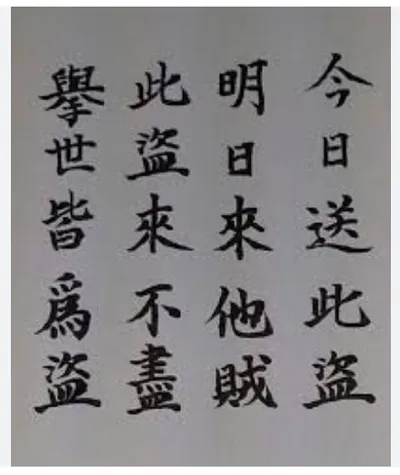 今日送此盜
明日來他賊
此盜來不盡
擧世皆爲盜